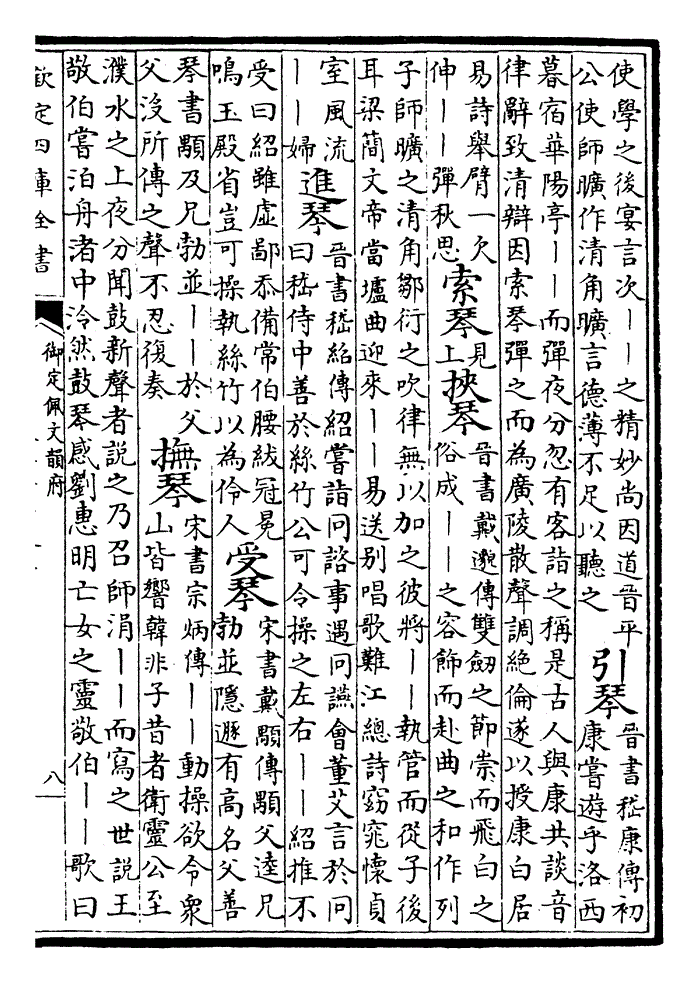 使學之後宴言次——之精妙尚因道晉平
公使師曠作清角曠言德薄不足以聽之
引琴
晉書嵇康傳初
康嘗遊乎洛西
暮宿華陽亭——而彈夜分忽有客詣之稱是古人與康共談音
律辭致清辯因索琴彈之而為廣陵散聲調絕倫遂以授康白居
易詩舉臂一欠
伸——彈秋思
索琴
見
上
挾琴
晉書戴邈傳雙劒之節崇而飛白之
俗成——之容飾而赴曲之和作列
子師曠之清角鄒衍之吹律無以加之彼將——執管而從子後
耳梁簡文帝當壚曲迎來——易送别唱歌難江總詩窈窕懷貞
室風流
——婦
進琴
晉書嵇紹傳紹嘗詣冏諮事遇冏讌會董艾言於冏
曰嵇侍中善於絲竹公可令操之左右——紹推不
受曰紹雖虛鄙忝備常伯腰紱冠冕
鳴玉殿省豈可操執絲竹以為伶人
受琴
宋書戴顒傳顒父逵兄
勃並隱遯有高名父善
琴書顒及兄勃並——於父
父沒所傳之聲不忍復奏
撫琴
宋書宗炳傳——動操欲令衆
山皆響韓非子昔者衛靈公至
濮水之上夜分聞鼓新聲者說之乃召師涓——而寫之世說王
敬伯嘗泊舟渚中泠然鼓琴感劉惠明亡女之靈敬伯——歌曰
欽定四庫全書
御定佩文韻府
八